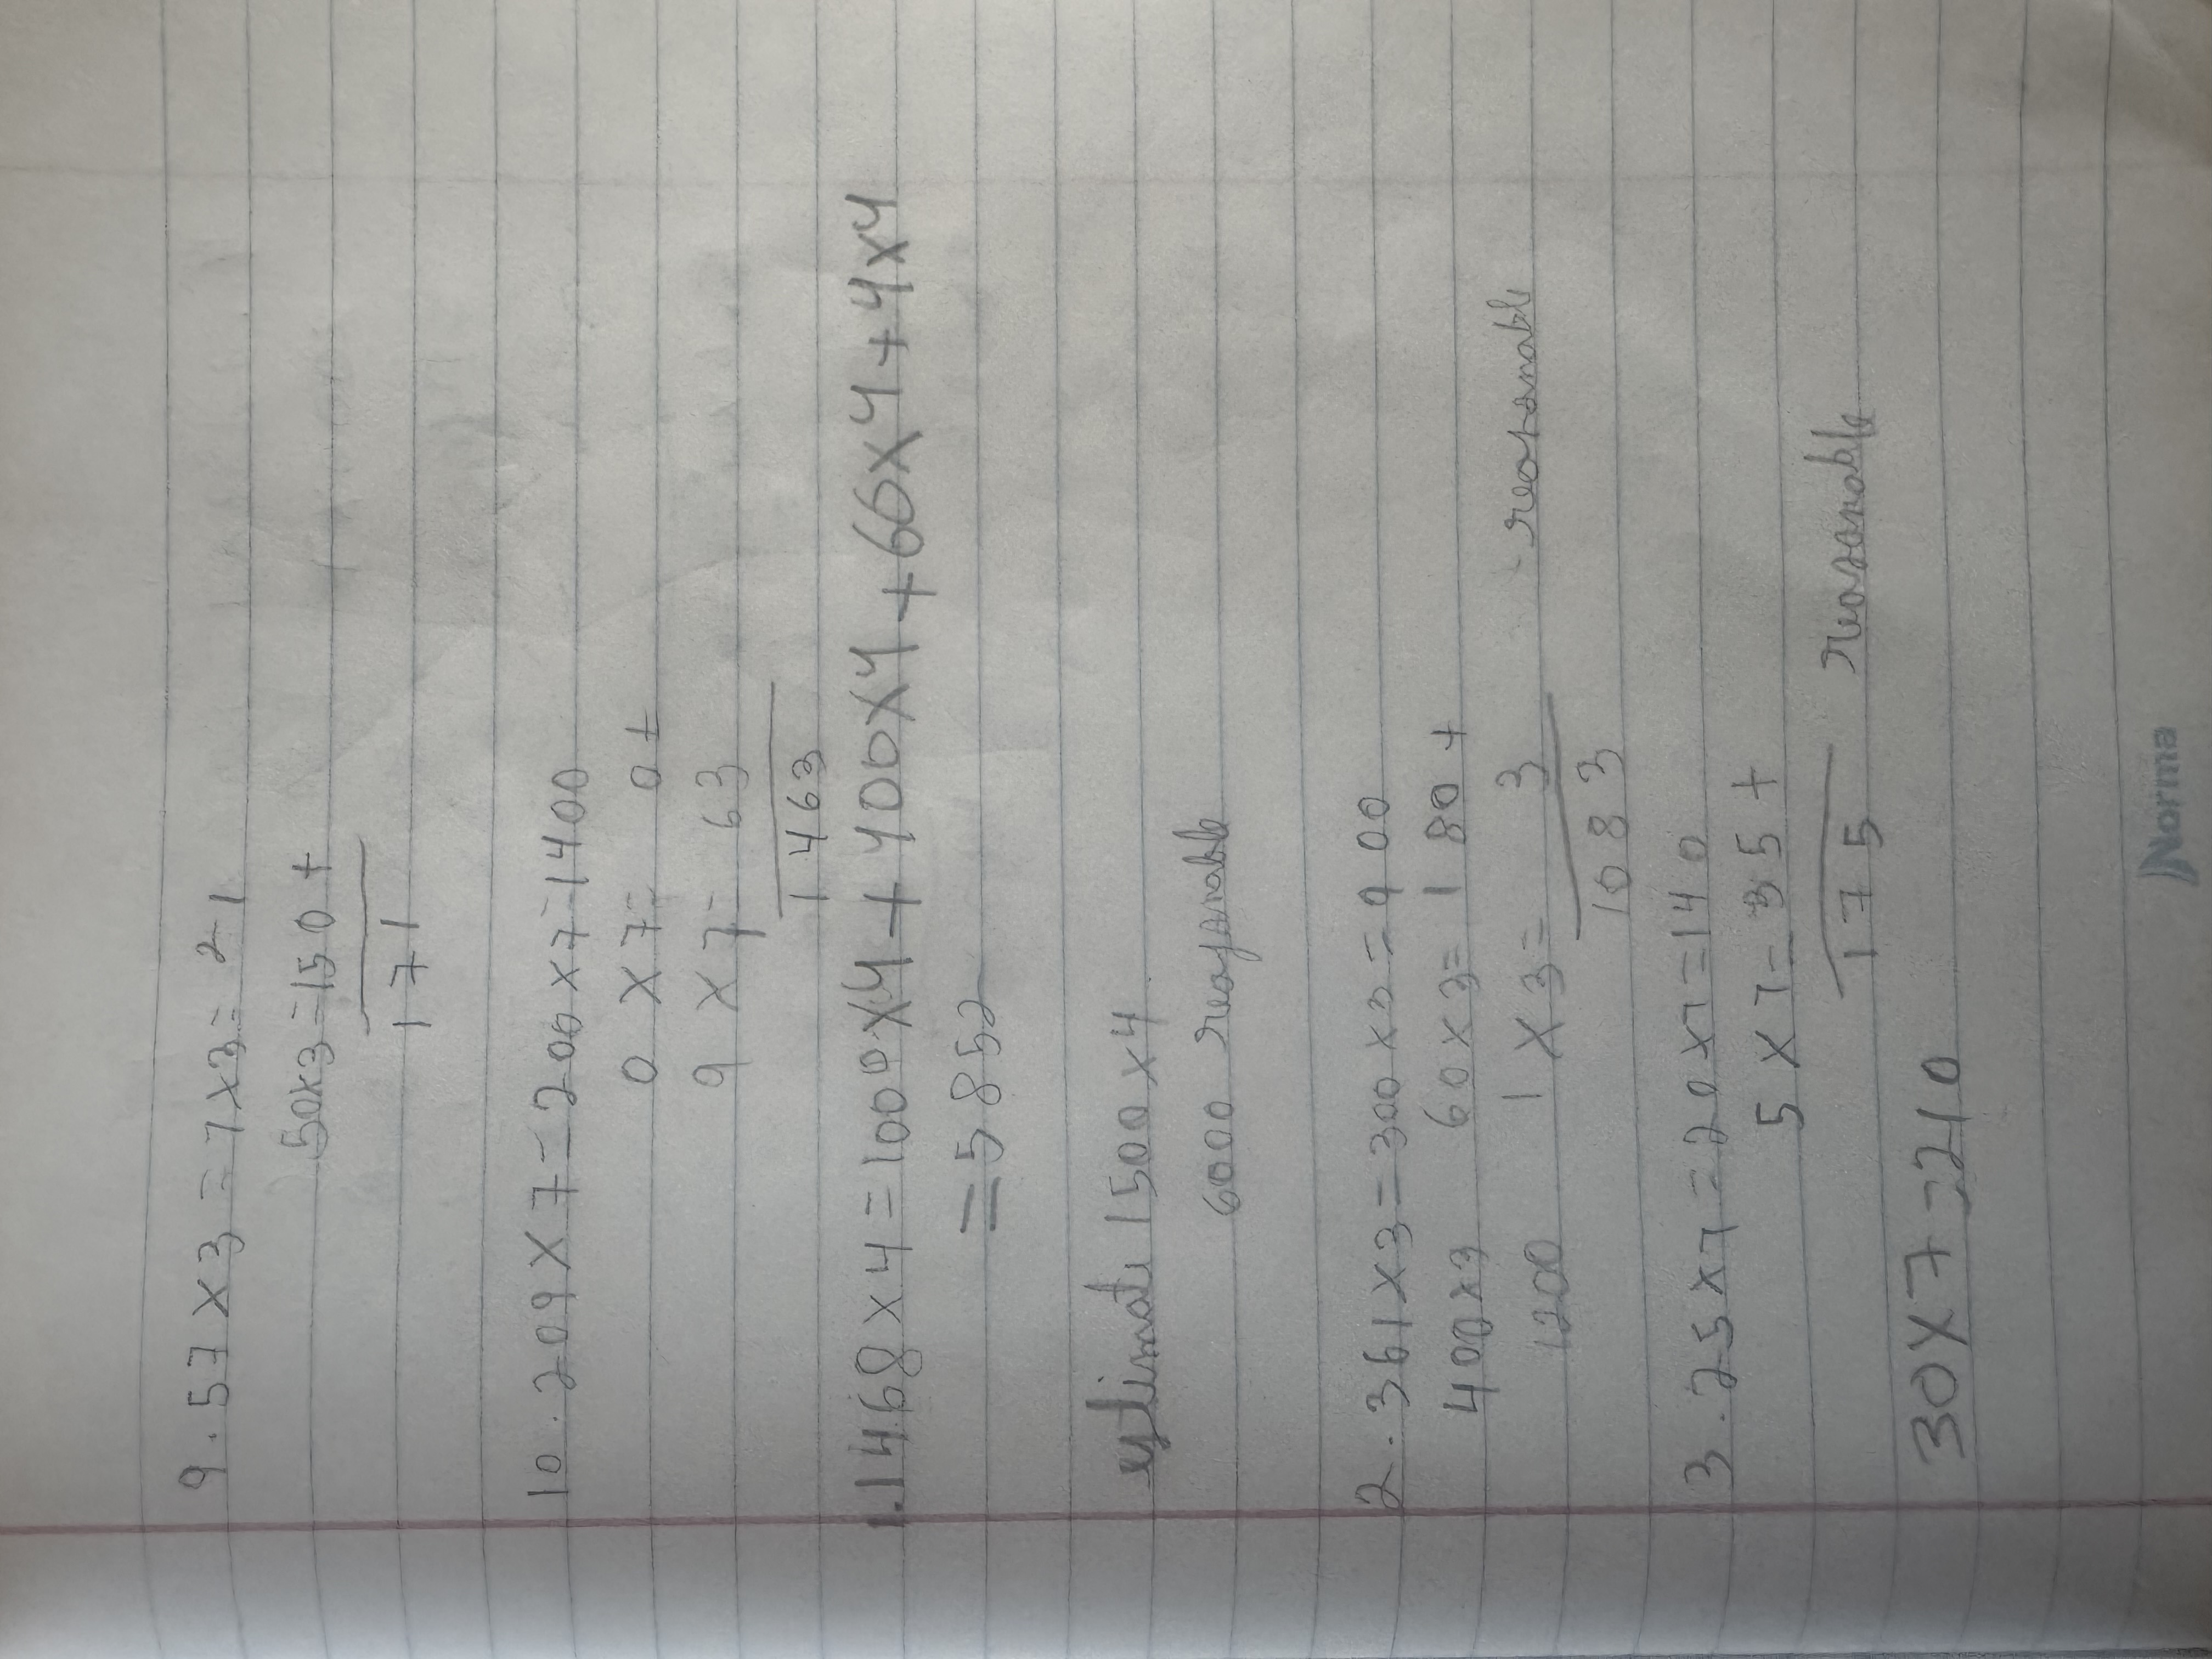 9. 57 x 3 = 7 x 3 = 21
50x3=150 +
171
10. 209 x 7 = 200 x 7 = 1400
0 x 7 = 0 +
9 x 7 = 63
1463
1.1468 x 4 = 1000 x 4 + 400 x 4 + 60 x 4 + 4 x 4
= 5852
estimate 1500 x 4
6000 reasonable
2. 361 x 3 = 300 x 3 = 900
400x3 60 x 3 = 180 +
1200 1 x 3 = 3 reasonable
1083
3. 25 x 7 = 20 x 7 = 140
5 x 7 = 35 +
175 reasonable
30 x 7 = 210
Norma